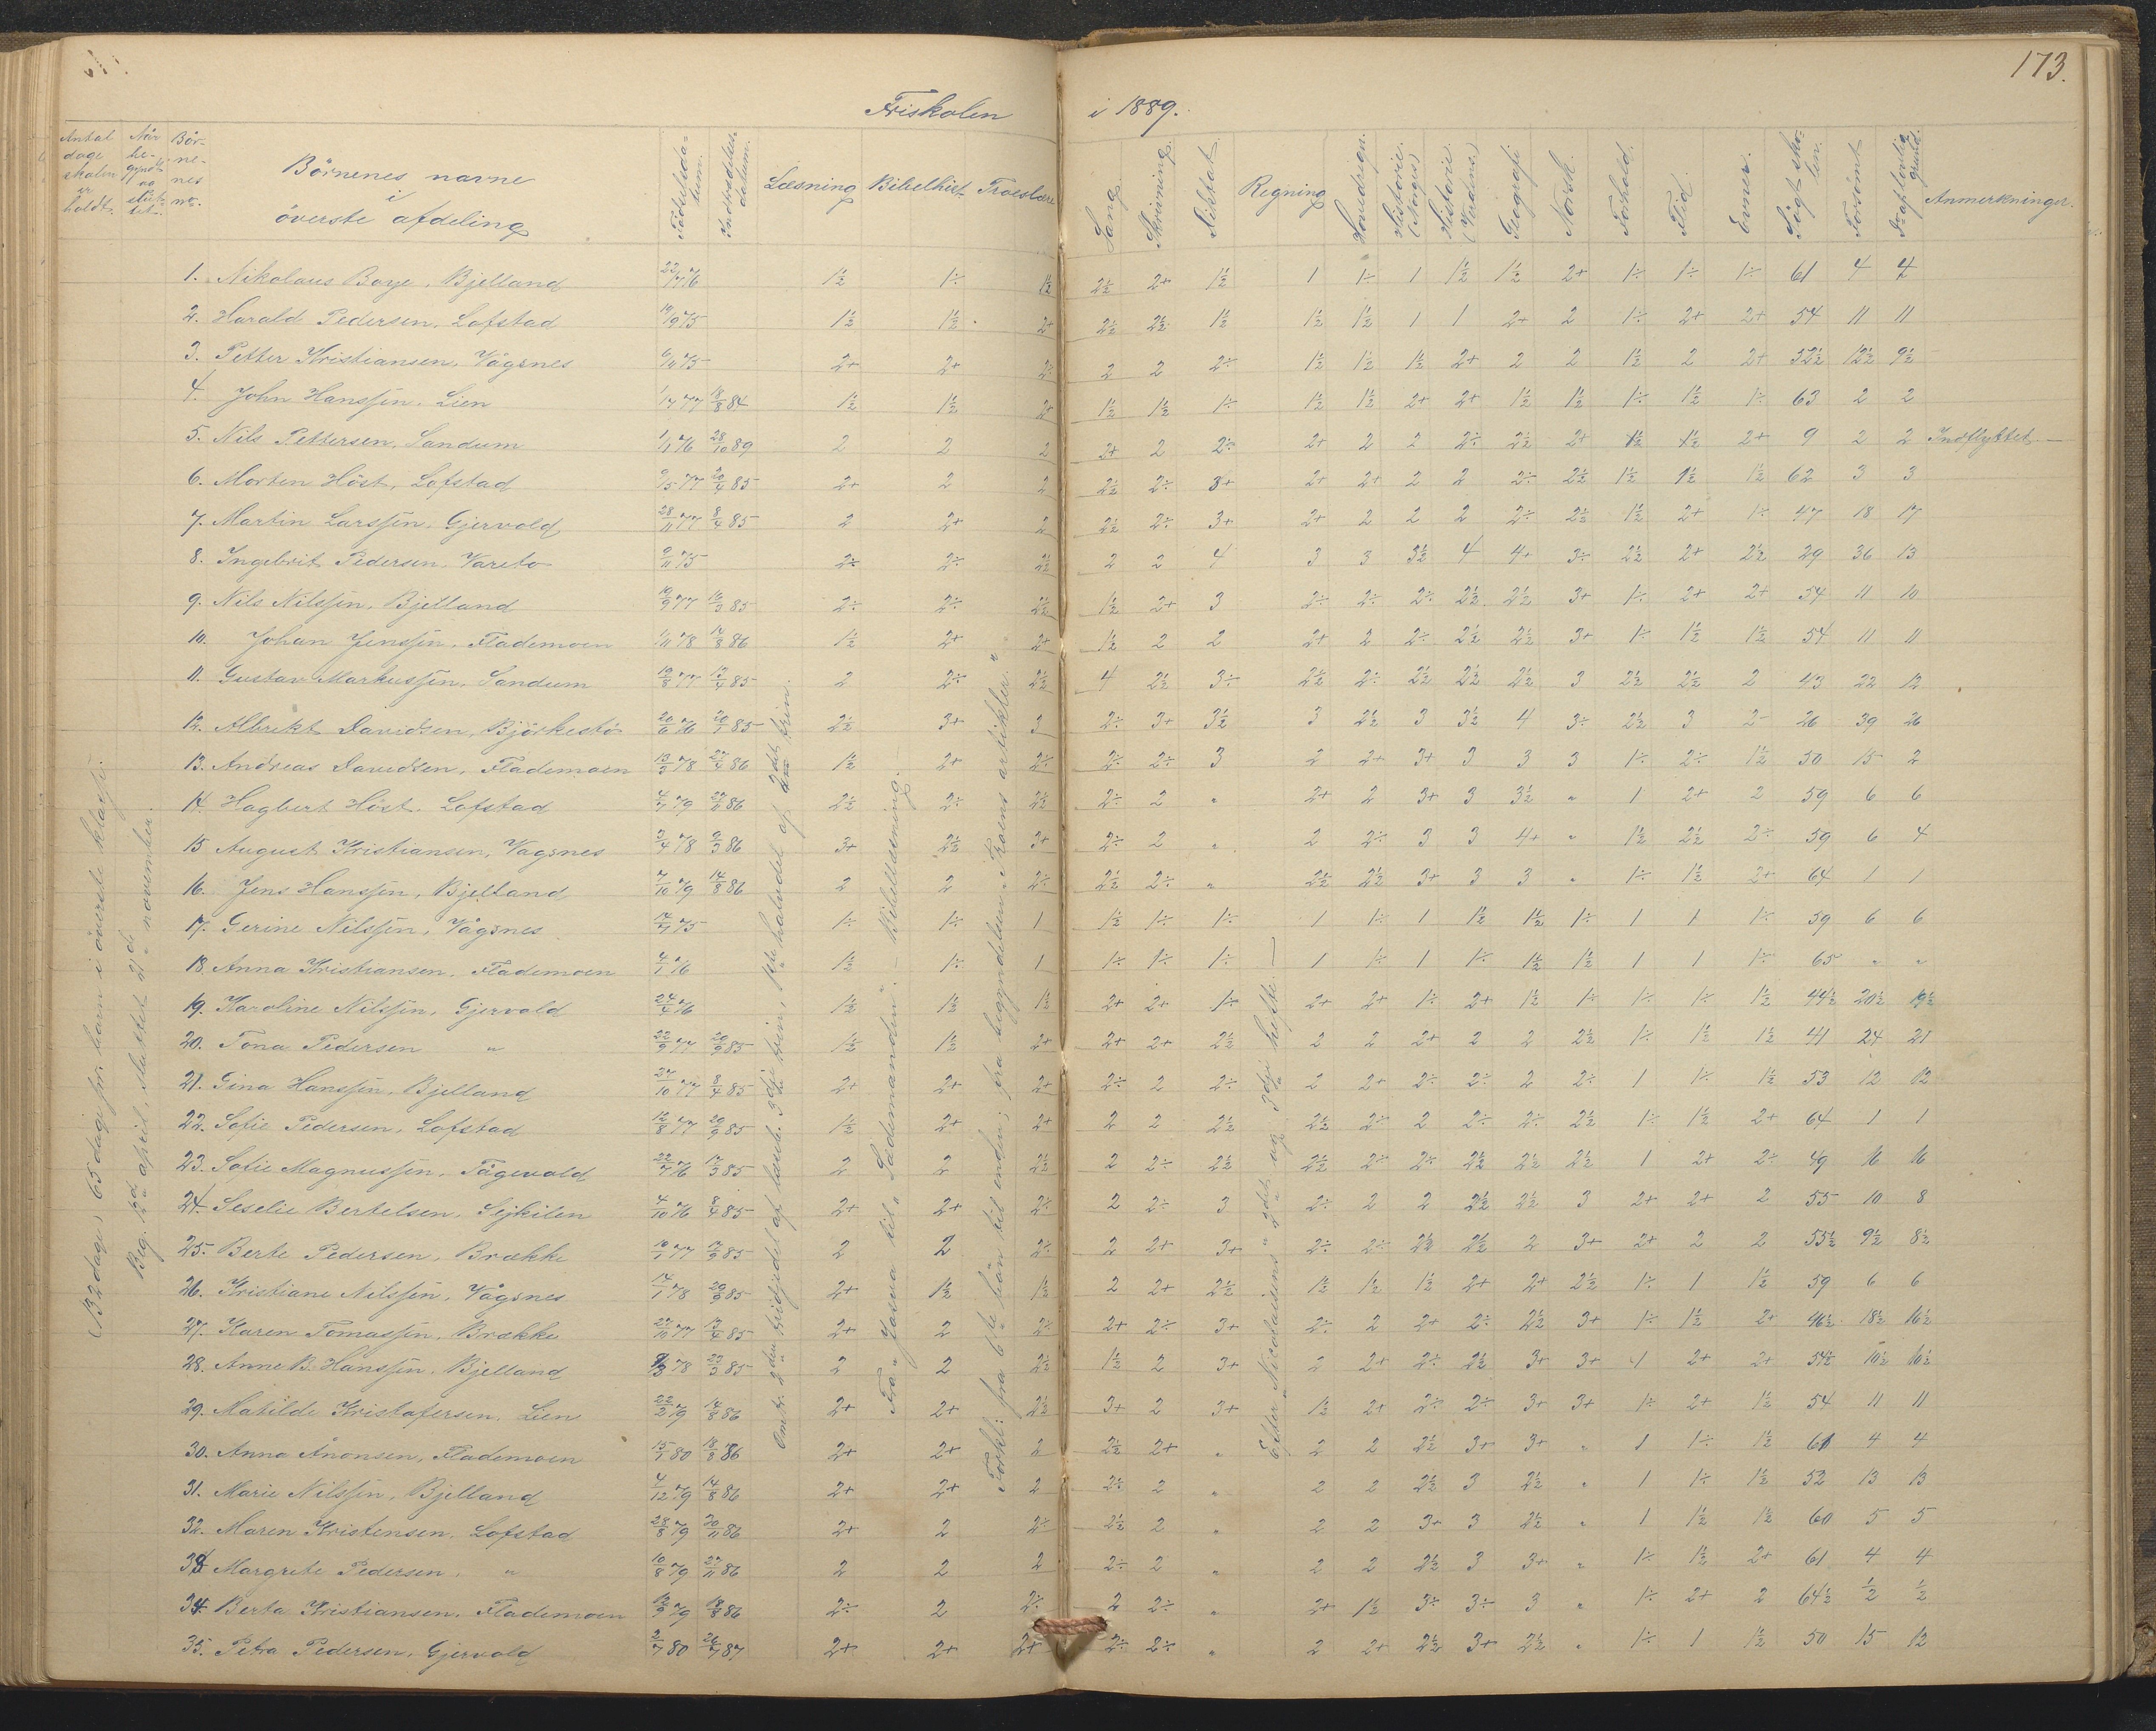 173.
Friskolen i 1889.
Antal dage skolen er holdt.
Når begyndt og sluttet.
Børnenes nr.
Børnenes navne
i
øverste afdeling
Fødselsdatum.
Indtrædelsesdatum.
Læsning Bibelhist. Troeslære
Sang Skrivning Diktat Regning Hovedregn. Historie (Norges) Historie (Verdens) Geografi Norsk. Forhold. Flid. Evner. Søgt skolen. Forsømt Anmerkninger.
1. Nikolaus Boye, Bjelland 22/7 76 1½ 1÷ 1½ 2½ 2+ 1½ 1 1÷ 1 1½ 1½ 2+ 1÷ 1÷ 1÷ 61 4 4
2. Harald Pedersen, Lofstad 19/9 75 1½ 1½ 2+ 2½ 2½ 1½ 1½ 1½ 1 1 2+ 2 1÷ 2+ 2+ 54 11 11
3. Petter Kristiansen, Vågsnes 6/11 75 2+ 2+ 2÷ 2 2 2÷ 1½ 1½ 1½ 2+ 2 2 1½ 2 2+ 52½ 12½ 9½
4. John Hanssen, Lien 1/7 77 18/8 84 1½ 1½ 2+ 1½ 1½ 1÷ 1½ 1½ 2+ 2+ 1½ 1½ 1÷ 1½ 1÷ 63 2 2
5. Nils Pettersen, Sandum 1/11 76 28/10 89 2 2 2 2+ 2 2÷ 2+ 2 2 2÷ 2½ 2+ 1½ 1½ 2+ 9 2 2 Indflyttet
6. Morten Høst, Lofstad 9/5 77 20/4 85 2+ 2 2 2½ 2÷ 3+ 2+ 2+ 2 2 2÷ 2½ 1½ 1½ 1½ 62 3 3
7. Martin Larssen, Gjervold 28/11 77 8/4 85 2 2+ 2 2½ 2÷ 3+ 2+ 2 2 2 2÷ 2½ 1½ 2+ 1÷ 47 18 17
8. Ingebrit Pedersen, Vareto 9/11 75 2÷ 2÷ 2½ 2 2 4 3 3 3½ 4 4+ 3÷ 2½ 2+ 2½ 29 36 13
9. Nils Nilssen, Bjelland 10/9 77 16/3 85 2÷ 2÷ 2½ 1½ 2+ 3 2÷ 2÷ 2÷ 2½ 2½ 3+ 1÷ 2+ 2+ 54 11 10
10. Johan Jenssen, Flademoen 1/11 78 14/8 86 1½ 2+ 2+ 1½ 2 2 2+ 2 2÷ 2½ 2½ 3+ 1÷ 1½ 1½ 54 11 11
11. Gustav Markussen, Sandum 19/8 77 13/4 85 2 2÷ 2½ 4 2½ 3÷ 2½ 2÷ 2½ 2½ 2½ 3 2½ 2½ 2 43 22 12
12. Albrikt Davidsen, Bjørkestø 20/6 76 20/7 85 2½ 3+ 3 2÷ 3+ 3½ 3 2½ 3 3½ 4 3÷ 2½ 3 2- 26 39 26
13. Andreas Davidsen, Flademoen 13/3 78 27/4 86 1½ 2+ 2÷ 2÷ 2÷ 3 2 2+ 3+ 3 3 3 1÷ 2÷ 1½ 50 15 2
14. Hagbert Høst, Lofstad 4/7 79 27/11 86 2½ 2÷ 2½ 2÷ 2 „ 2+ 2 3+ 3 3½ „ 1 2+ 2 59 6 6
15 August Kristiansen, Vagsnes 3/4 78 9/3 86 3+ 2½ 3+ 2÷ 2 „ 2 2÷ 3 3 4+ „ 1½ 2½ 2÷ 59 6 4
16. Jens Hanssen, Bjelland 7/10 79 14/8 86 2 2 2÷ 2½ 2÷ „ 2½ 2½ 3+ 3 3 „ 1÷ 1½ 2+ 64 1 1
17. Gerine Nilssen, Vågsnes 14/7 75 1÷ 1÷ 1 1½ 1÷ 1÷ 1 1÷ 1 1½ 1½ 1÷ 1 1 1÷ 59 6 6
18. Anna Kristiansen, Flademoen 4/1 76 1½ 1÷ 1 1÷ 1÷ 1÷ 1 1÷ 1 1÷ 1½ 1½ 1 1 1÷ 65 „ „
19. Karoline Nilssen, Gjervold 24/4 76 1½ 1½ 1½ 2+ 2+ 1÷ 2+ 2+ 1÷ 2+ 1½ 1÷ 1÷ 1÷ 1½ 44½ 20½ 19½
20. Tona Pedersen „ 22/9 77 20/9 85 1½ 1½ 2+ 2+ 2+ 2½ 2 2 2+ 2 2 2½ 1÷ 1½ 1½ 41 24 21
21. Gina Hanssen, Bjelland 27/10 77 8/4 85 2+ 2+ 2+ 2÷ 2 2÷ 2 2+ 2÷ 2÷ 2 2÷ 1 1÷ 1½ 53 12 12
22. Sofie Pedersen, Lofstad 12/8 77 20/9 85 1½ 2+ 2+ 2 2 2½ 2½ 2÷ 2 2÷ 2÷ 2½ 1÷ 1½ 2+ 64 1 1
23. Sofie Magnussen, Tågevold 22/7 76 17/3 85 2 2 2½ 2 2÷ 2½ 2½ 2÷ 2÷ 2½ 2½ 2½ 1 2+ 2÷ 49 16 16
24. Seselie Bertelsen, Sejkilen 4/10 76 8/4 85 2+ 2+ 2÷ 2 2÷ 3 2÷ 2 2 2½ 2½ 3 2+ 2+ 2 55 10 8
25. Berte Pedersen, Brække 10/1 77 17/9 85 2 2 2÷ 2 2+ 3+ 2÷ 2÷ 2½ 2½ 2 3+ 2+ 2 2 55½ 9½ 8½
26. Kristiane Nilssen, Vågsnes 14/1 78 29/9 85 2+ 1½ 1½ 2 2+ 2½ 1½ 1½ 1½ 2+ 2+ 2½ 1÷ 1 1½ 59 6 6
27. Karen Tomassen, Brække 22/11 77 13/4 85 2+ 2 2÷ 2+ 2÷ 3+ 2÷ 2 2+ 2÷ 2½ 3+ 1÷ 1½ 2+ 46½ 18½ 16½
28. Anne B. Hanssen, Bjelland 9/3 78 23/3 85 2 2 2½ 1½ 2 3+ 2 2+ 2÷ 2½ 3+ 3+ 1 2+ 2+ 54½ 10½ 10½
29. Matilde Kristofersen, Lien 22/2 79 14/8 86 2+ 2+ 2½ 3+ 2 3+ 1½ 2+ 2÷ 2÷ 3+ 3+ 1÷ 2+ 1½ 54 11 11
30. Anna Ånonsen, Flademoen 15/7 80 18/8 86 2+ 2+ 2 2½ 2+ „ 2 2 2½ 3+ 3+ „ 1 1÷ 1½ 61 4 4
31. Marie Nilssen, Bjelland 4/12 79 14/8 86 2+ 2+ 2 2÷ 2 „ 2 2 2½ 3 2½ „ 1 1÷ 1½ 52 13 13
32. Maren Kristensen, Lofstad 28/8 79 20/11 86 2+ 2 2÷ 2½ 2 „ 2 2 3+ 3 2½ „ 1 1½ 1½ 60 5 5
33 Margrete Pedersen, „ 10/8 79 27/11 86 2 2 2 2÷ 2 „ 2 2 2½ 3 3+ „ 1÷ 1½ 2+ 61 4 4
34. Berta Kristiansen, Flademoen 12/9 79 18/8 86 2÷ 2 2÷ 2 2÷ „ 2+ 1½ 3÷ 3÷ 3 „ 1÷ 2+ 2 64½ ½ ½
35. Petra Pedersen, Gjervold 2/7 80 26/7 87 2+ 2+ 2+ 2÷ 2÷ „ 2 2+ 2½ 3+ 2½ „ 1÷ 1 1½ 50 15 12
(132 dage) 65 dage for barn i øverste klasse.
Beg. 12te april, sluttet 21de november.
Omtr. 2den tridjedel af læseb. 3dje trin, 1ste halvdel af 2det trin.
Fra „Josva til „Sædemanden". Bibellæsning.
Forkl: fra 6te bøn til enden; fra begyndelsen „Troens artikler."
Efter „Nicolaisens" 2det og 3dje hefte.